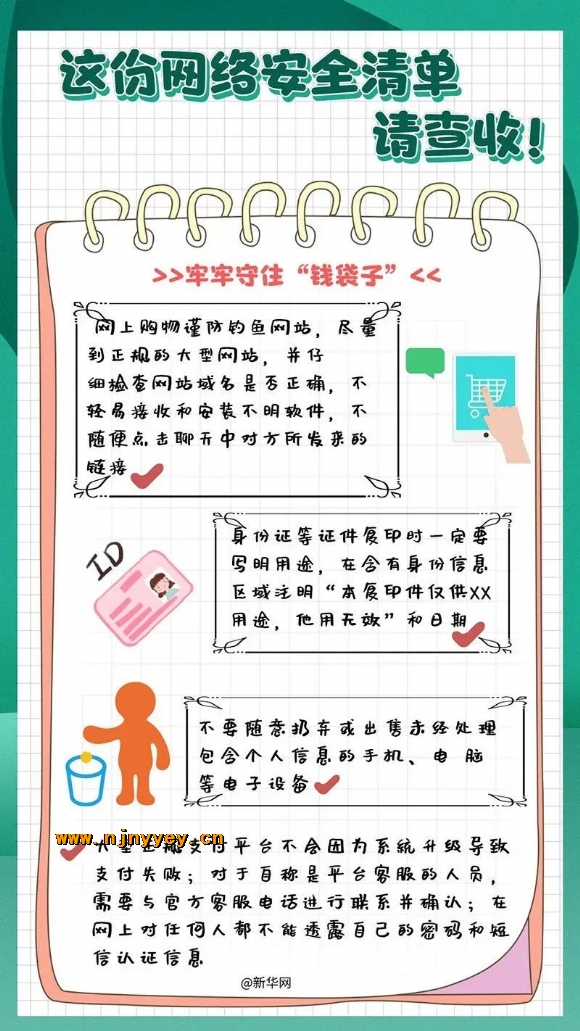 这份网络安全清单
请查收！
>>牢牢守住“钱袋子”<<
网上购物谨防钓鱼网站，尽量
到正规的大型网站，并仔
细检查网站域名是否正确，不
轻易接收和安装不明软件，不
随便点击聊天中对方所发来的
链接
身份证等证件复印时一定要
写明用途，在含有身份信息
区域注明“本复印件仅供XX
用途，他用无效”和日期
ID
不要随意扔弃或出售未经处理
包含个人信息的手机、电 脑
等电子设备
www.njnyyey.cn
大型
支付平台不会因为系统升级导致
支付失败；对于自称是平台客服的人员，
需要与官方客服电话进行联系并确认；在
网上对任何人都不能透露自己的密码和短
信认证信息
@新华网